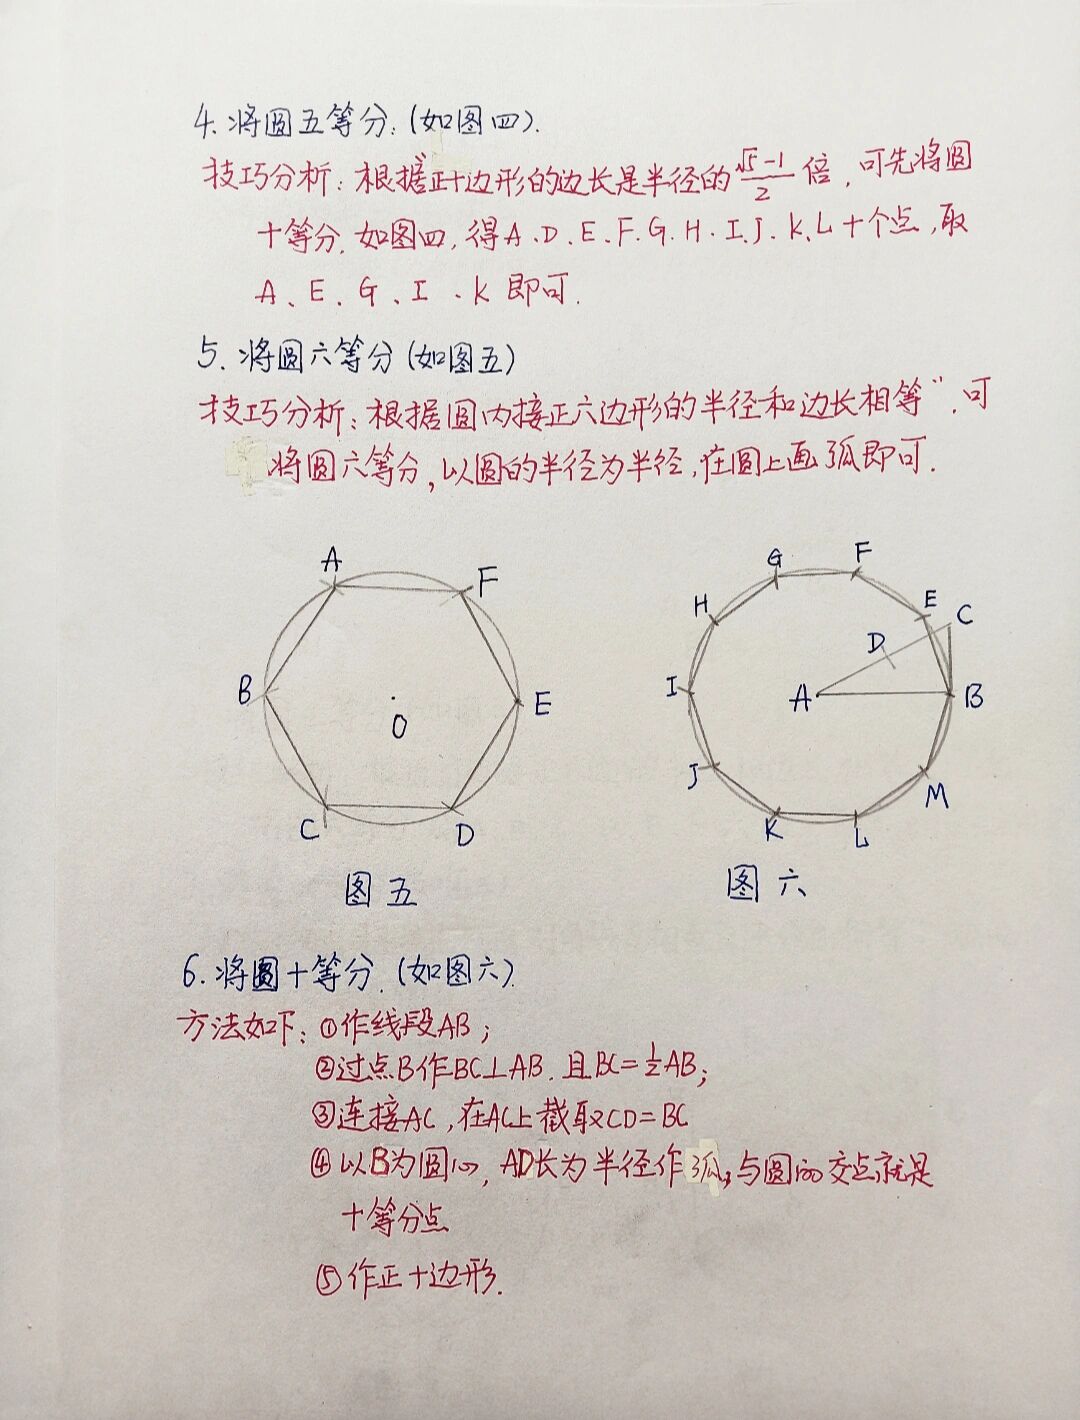 4.将圆五等分:(如图四).
技巧分析:根据"正十边形的边长是半径的(√5-1)/2倍,可先将圆
十等分.如图四,得A、D、E、F、G、H、I、J、K、L十个点,取
A、E、G、I、K即可.
5.将圆六等分(如图五)
技巧分析:根据圆内接正六边形的半径和边长相等",可
将圆六等分,以圆的半径为半径,在圆上画弧即可.
A
F
B
O
E
C
D
图五
G
F
H
E
C
D
I
A
B
J
M
K
L
图六
6.将圆十等分.(如图六).
方法如下:①作线段AB;
②过点B作BC⊥AB.且BC=½AB;
③连接AC,在AC上截取CD=BC
④以B为圆心,AD长为半径作弧,与圆的交点就是
十等分点
⑤作正十边形.